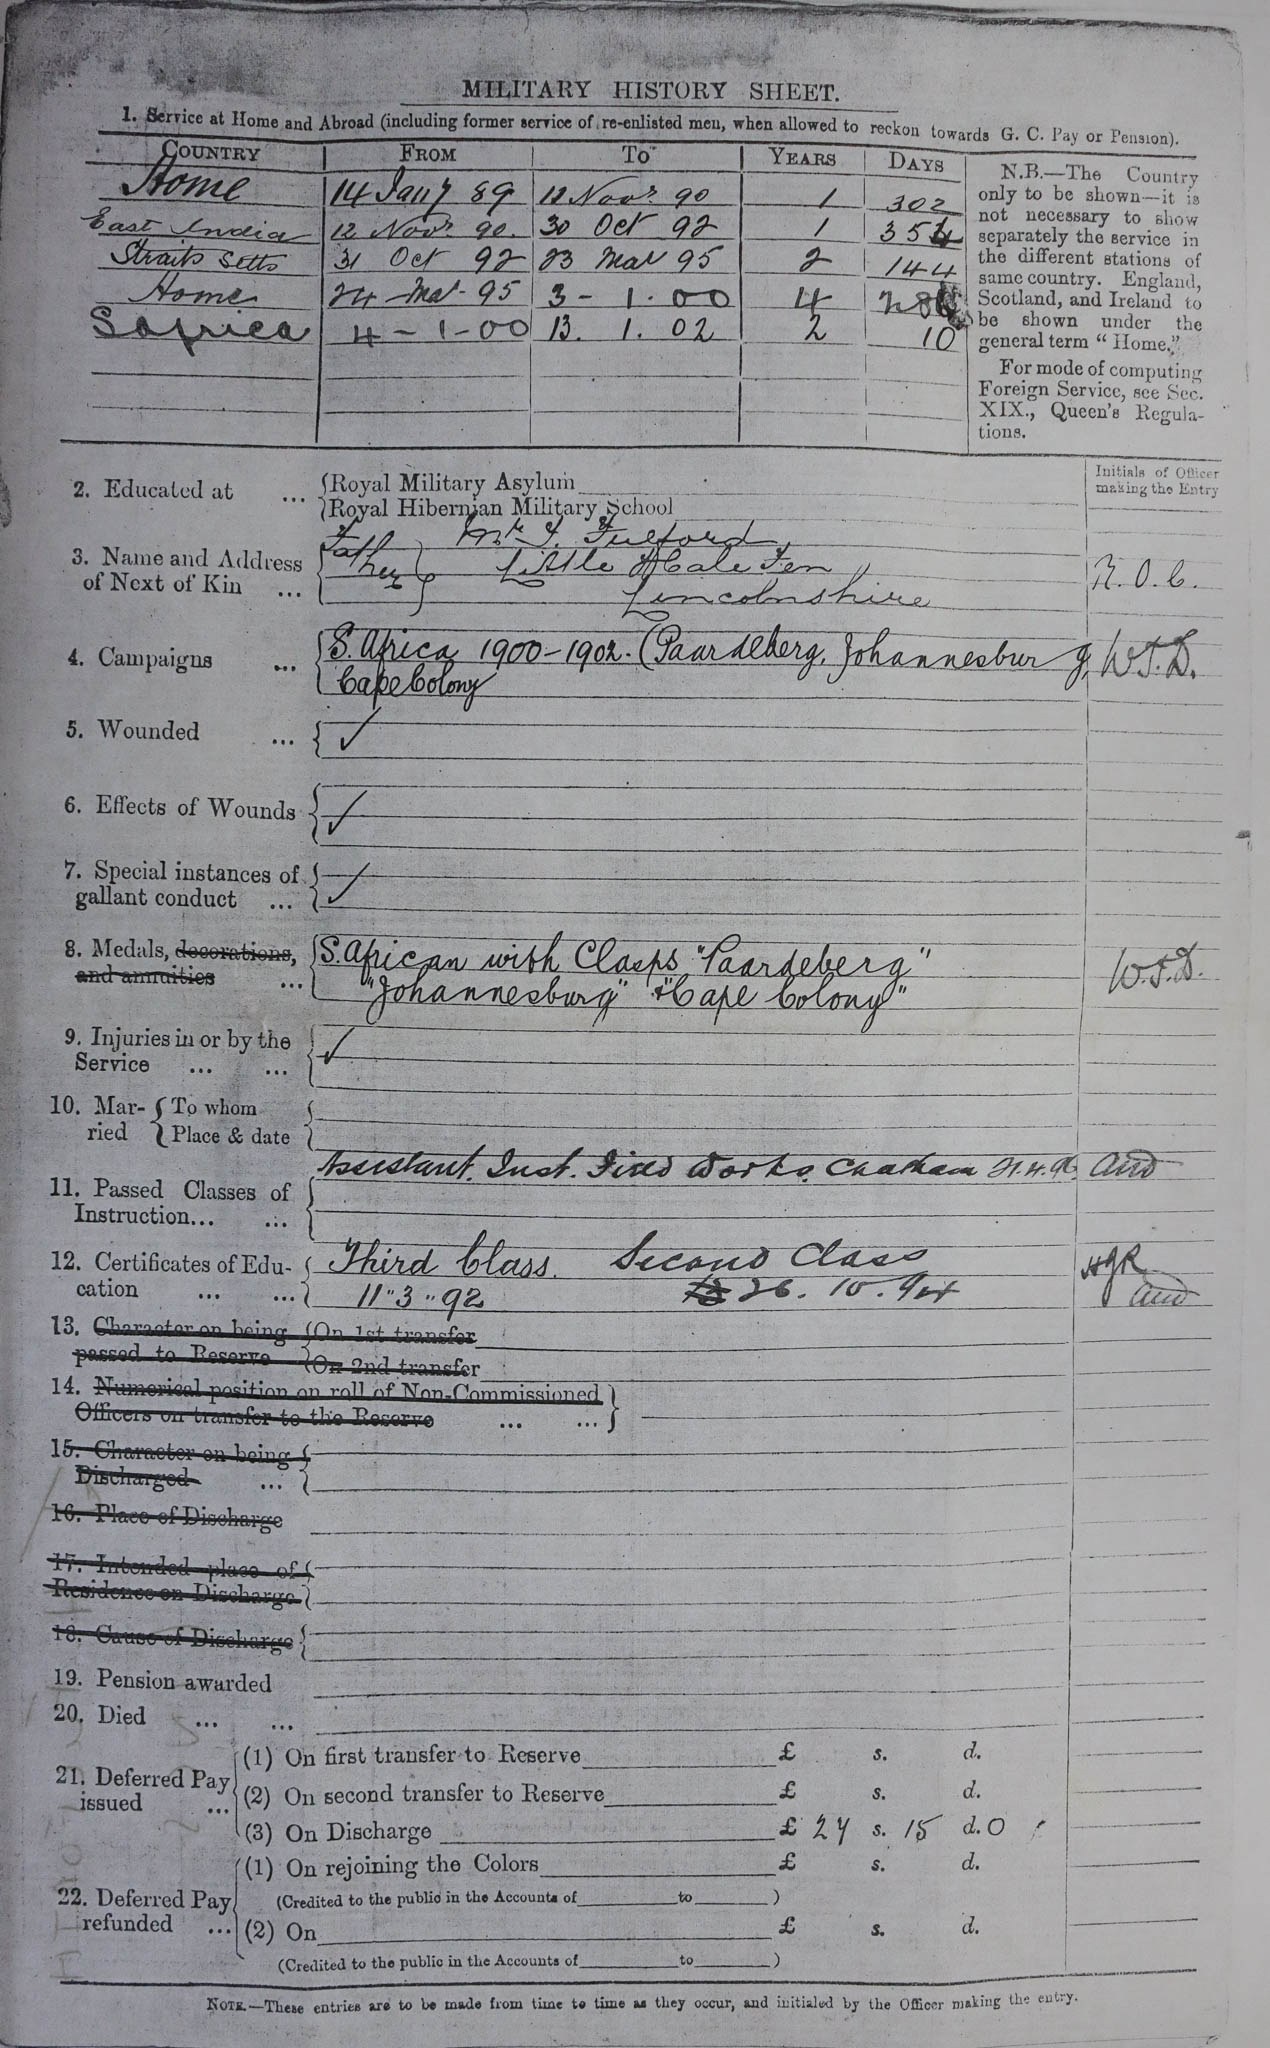 MILITARY HISTORY SHEET.
1. Service at Home and Abroad (including former service of re-enlisted men, when allowed to reckon towards G. C. Pay or Pension).
COUNTRY FROM TO YEARS DAYS
Home 14 Jany 89 12 Novr. 90 1 302
East India 12 Novr. 90. 30 Oct 92 1 354
Straits Setts 31 Oct 92 23 Mar 95 2 144
Home 24 - Mar - 95 3 - 1 . 00 4
S Africa 4 - 1 - 00 13. 1. 02 2 10
N.B.—The Country
only to be shown—it is
not necessary to show
separately the service in
the different stations of
same country. England,
Scotland, and Ireland to
be shown under the
general term “ Home.”
For mode of computing
Foreign Service, see Sec.
XIX., Queen's Regula-
tions.
Initials of Officer
making the Entry
2. Educated at ... Royal Military Asylum
Royal Hibernian Military School
3. Name and Address
of Next of Kin ...
Father Mr. J. Fulford
Little Hale Fen
Lincolnshire
N. O. C.
4. Campaigns ... S. Africa 1900-1902. (Paardeberg, Johannesburg, W.J.D.
Cape Colony
5. Wounded ... ✓
6. Effects of Wounds ✓
7. Special instances of
gallant conduct ... ✓
8. Medals, decorations,
and annuities ...
S. African with Clasps "Paardeberg"
"Johannesburg" & "Cape Colony"
W.J.D.
9. Injuries in or by the
Service ... ... ✓
10. Mar- To whom
ried Place & date
Assistant. Inst. Fixed Works. Chatham 21.4.96.
11. Passed Classes of
Instruction... ...
12. Certificates of Edu- Third Class. Second Class HJR
cation ... ... 11 " 3 " 92 26. 10. 94
13. Character on being On 1st transfer
passed to Reserve On 2nd transfer
14. Numerical position on roll of Non-Commissioned
Officers on transfer to the Reserve ... ...
15. Character on being
Discharged ...
16. Place of Discharge
17. Intended place of
Residence on Discharge
18. Cause of Discharge
19. Pension awarded
20. Died ... ...
21. Deferred Pay
issued ...
(1) On first transfer to Reserve £ s. d.
(2) On second transfer to Reserve £ s. d.
(3) On Discharge £ 24 s. 15 d. 0
22. Deferred Pay
refunded ...
(1) On rejoining the Colors £ s. d.
(Credited to the public in the Accounts of to )
(2) On £ s. d.
(Credited to the public in the Accounts of to )
NOTE.—These entries are to be made from time to time as they occur, and initialed by the Officer making the entry.